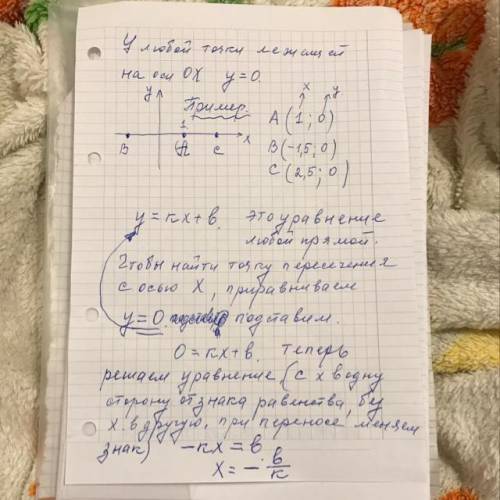 У любой точки лежащей
на оси OX y=0.
y
Пример.
1
B A C x
x y
A (1 ; 0)
B(-1,5; 0)
C (2,5; 0)
y = кx+в. это уравнение
любой прямой.
Чтобы найти точку пересечения
с осью X, приравниваем
y=0 подставим.
0=кx+в. Теперь
решаем уравнение (с x в одну
сторону от знака равенства, без
x в другую, при переносе меняем
знак) -кx = в
x = - в/к